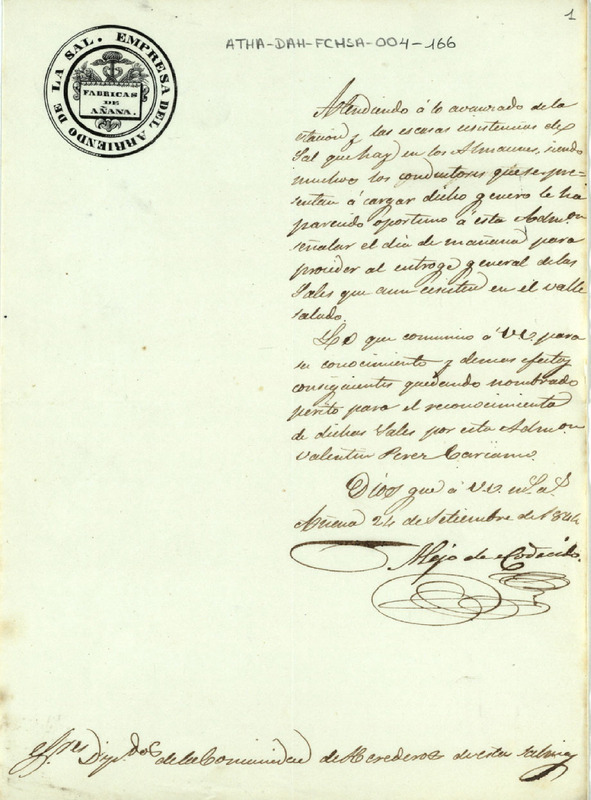 1
ATHA-DAH-FCMSA-004-166
EMPRESA DEL ARRIENDO DE LA SAL.
FABRICAS
DE
AÑANA.
Atendiendo á lo avanzado de la
estacion y las escasas ecsistencias de
Sal que hay en los Almacenes, siendo
muchos los conductores que se pre-
sentan á cargar dicho genero le ha
parecido oportuno á esta Admon
señalar el dia de mañana para
proceder al entroge general de las
Sales que aun ecsisten en el valle
salado.
Lo que comunico á VV. para
su conocimiento y demas efectos
consiguientes quedando nombrado
perito para el reconocimiento
de dichas Sales por esta Admon
Valentin Perez Cariamo.
Dios gue á VV. ms. as.
Añana 24 de Setiembre de 1844
Alejo de
Sres Dipdos de la Comunidad de Herederos de estas Salinas